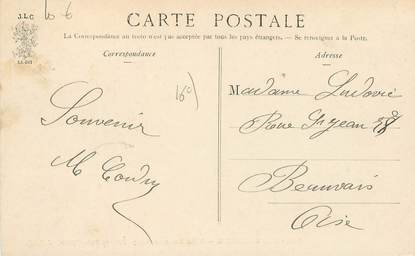 J.L.C
CARTE POSTALE
La Correspondance au recto n'est pas acceptée par tous les pays étrangers. — Se renseigner à la Poste.
Correspondance
Adresse
Souvenir
Madame Ludovic
Rue St Jean 48
Beauvais
Oise